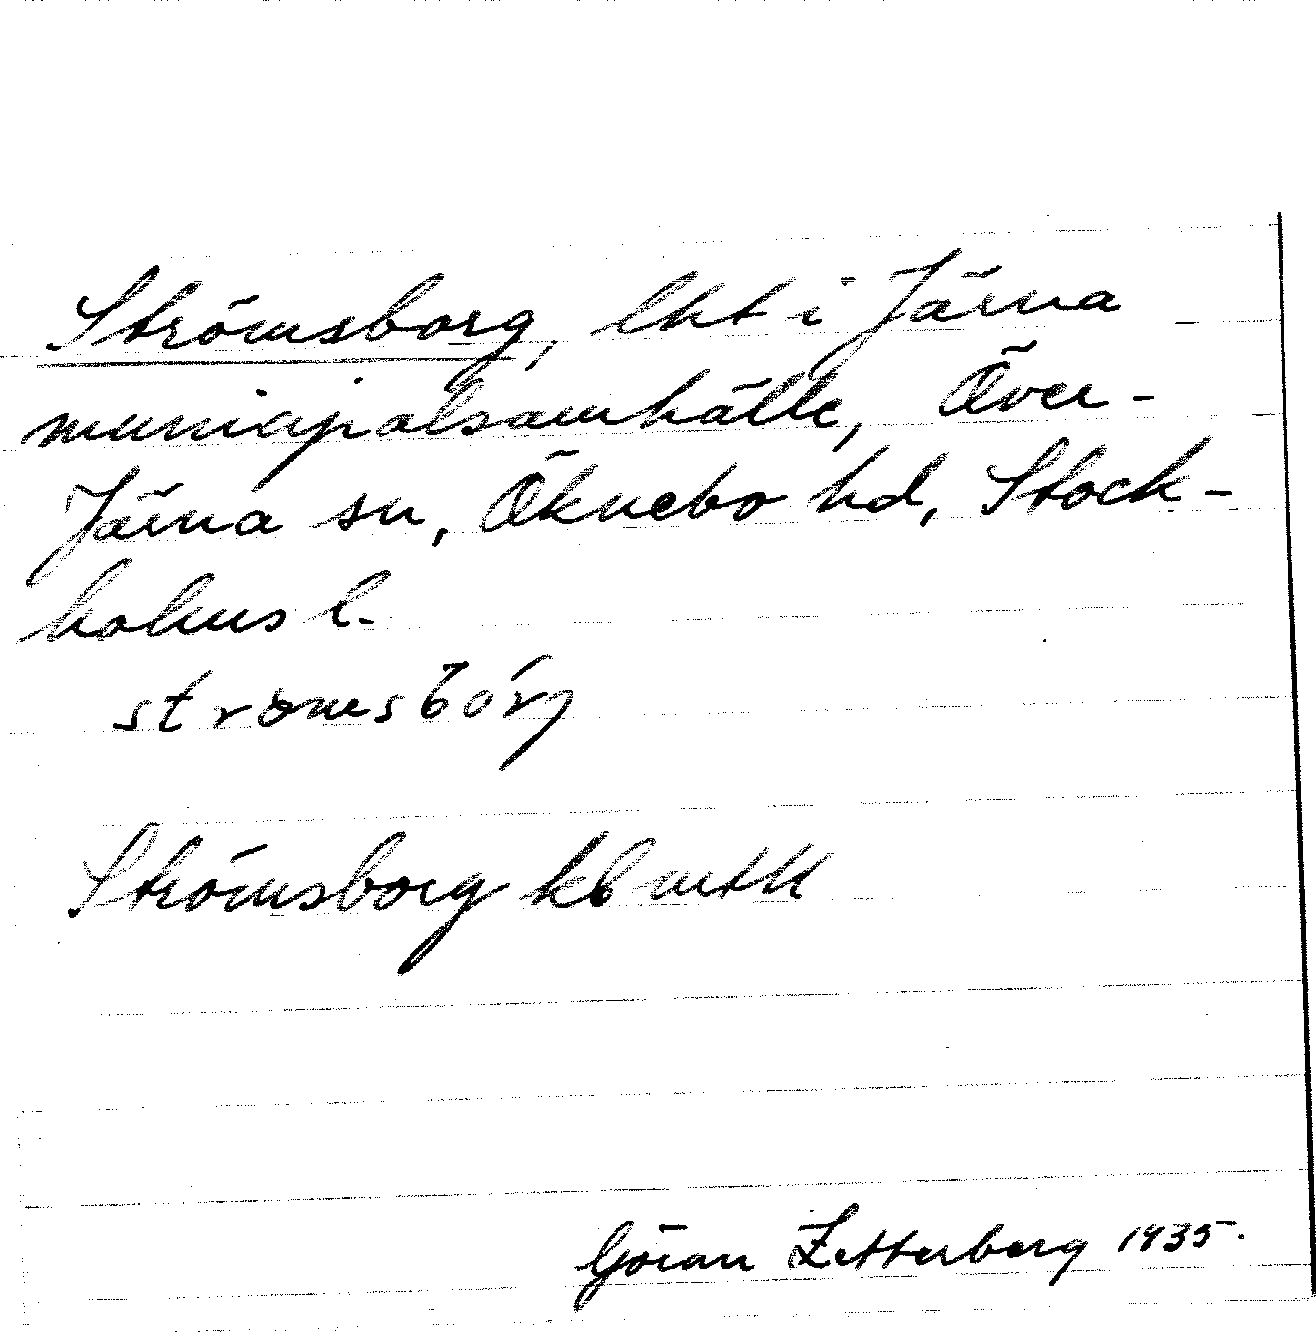 Strömsborg, lht i Järna
municipalsamhälle, Över-
Järna sn, Öknebo hd, Stock-
holms l.
Strömsborg kb mtk
Göran Zetterberg 1935.